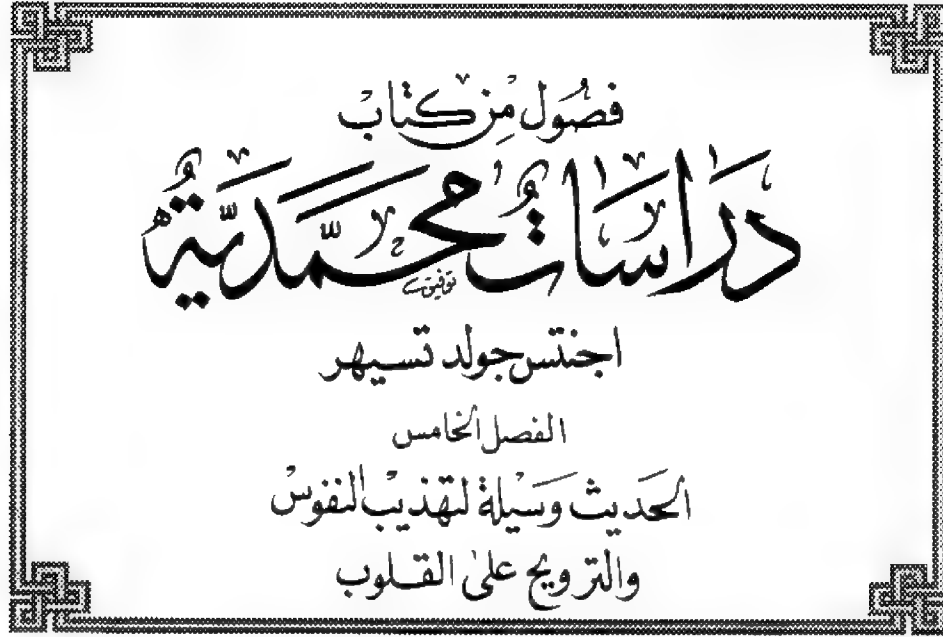 فصُول مِن كتابْ
دَراسَاتٌ محمَّديَّةٌ
توفيق
اجنتس جولد تسيهر
الفصل الخامس
الحَديث وَسيلة لتهذيب النفوسْ
والترويح علىٰ القلوب